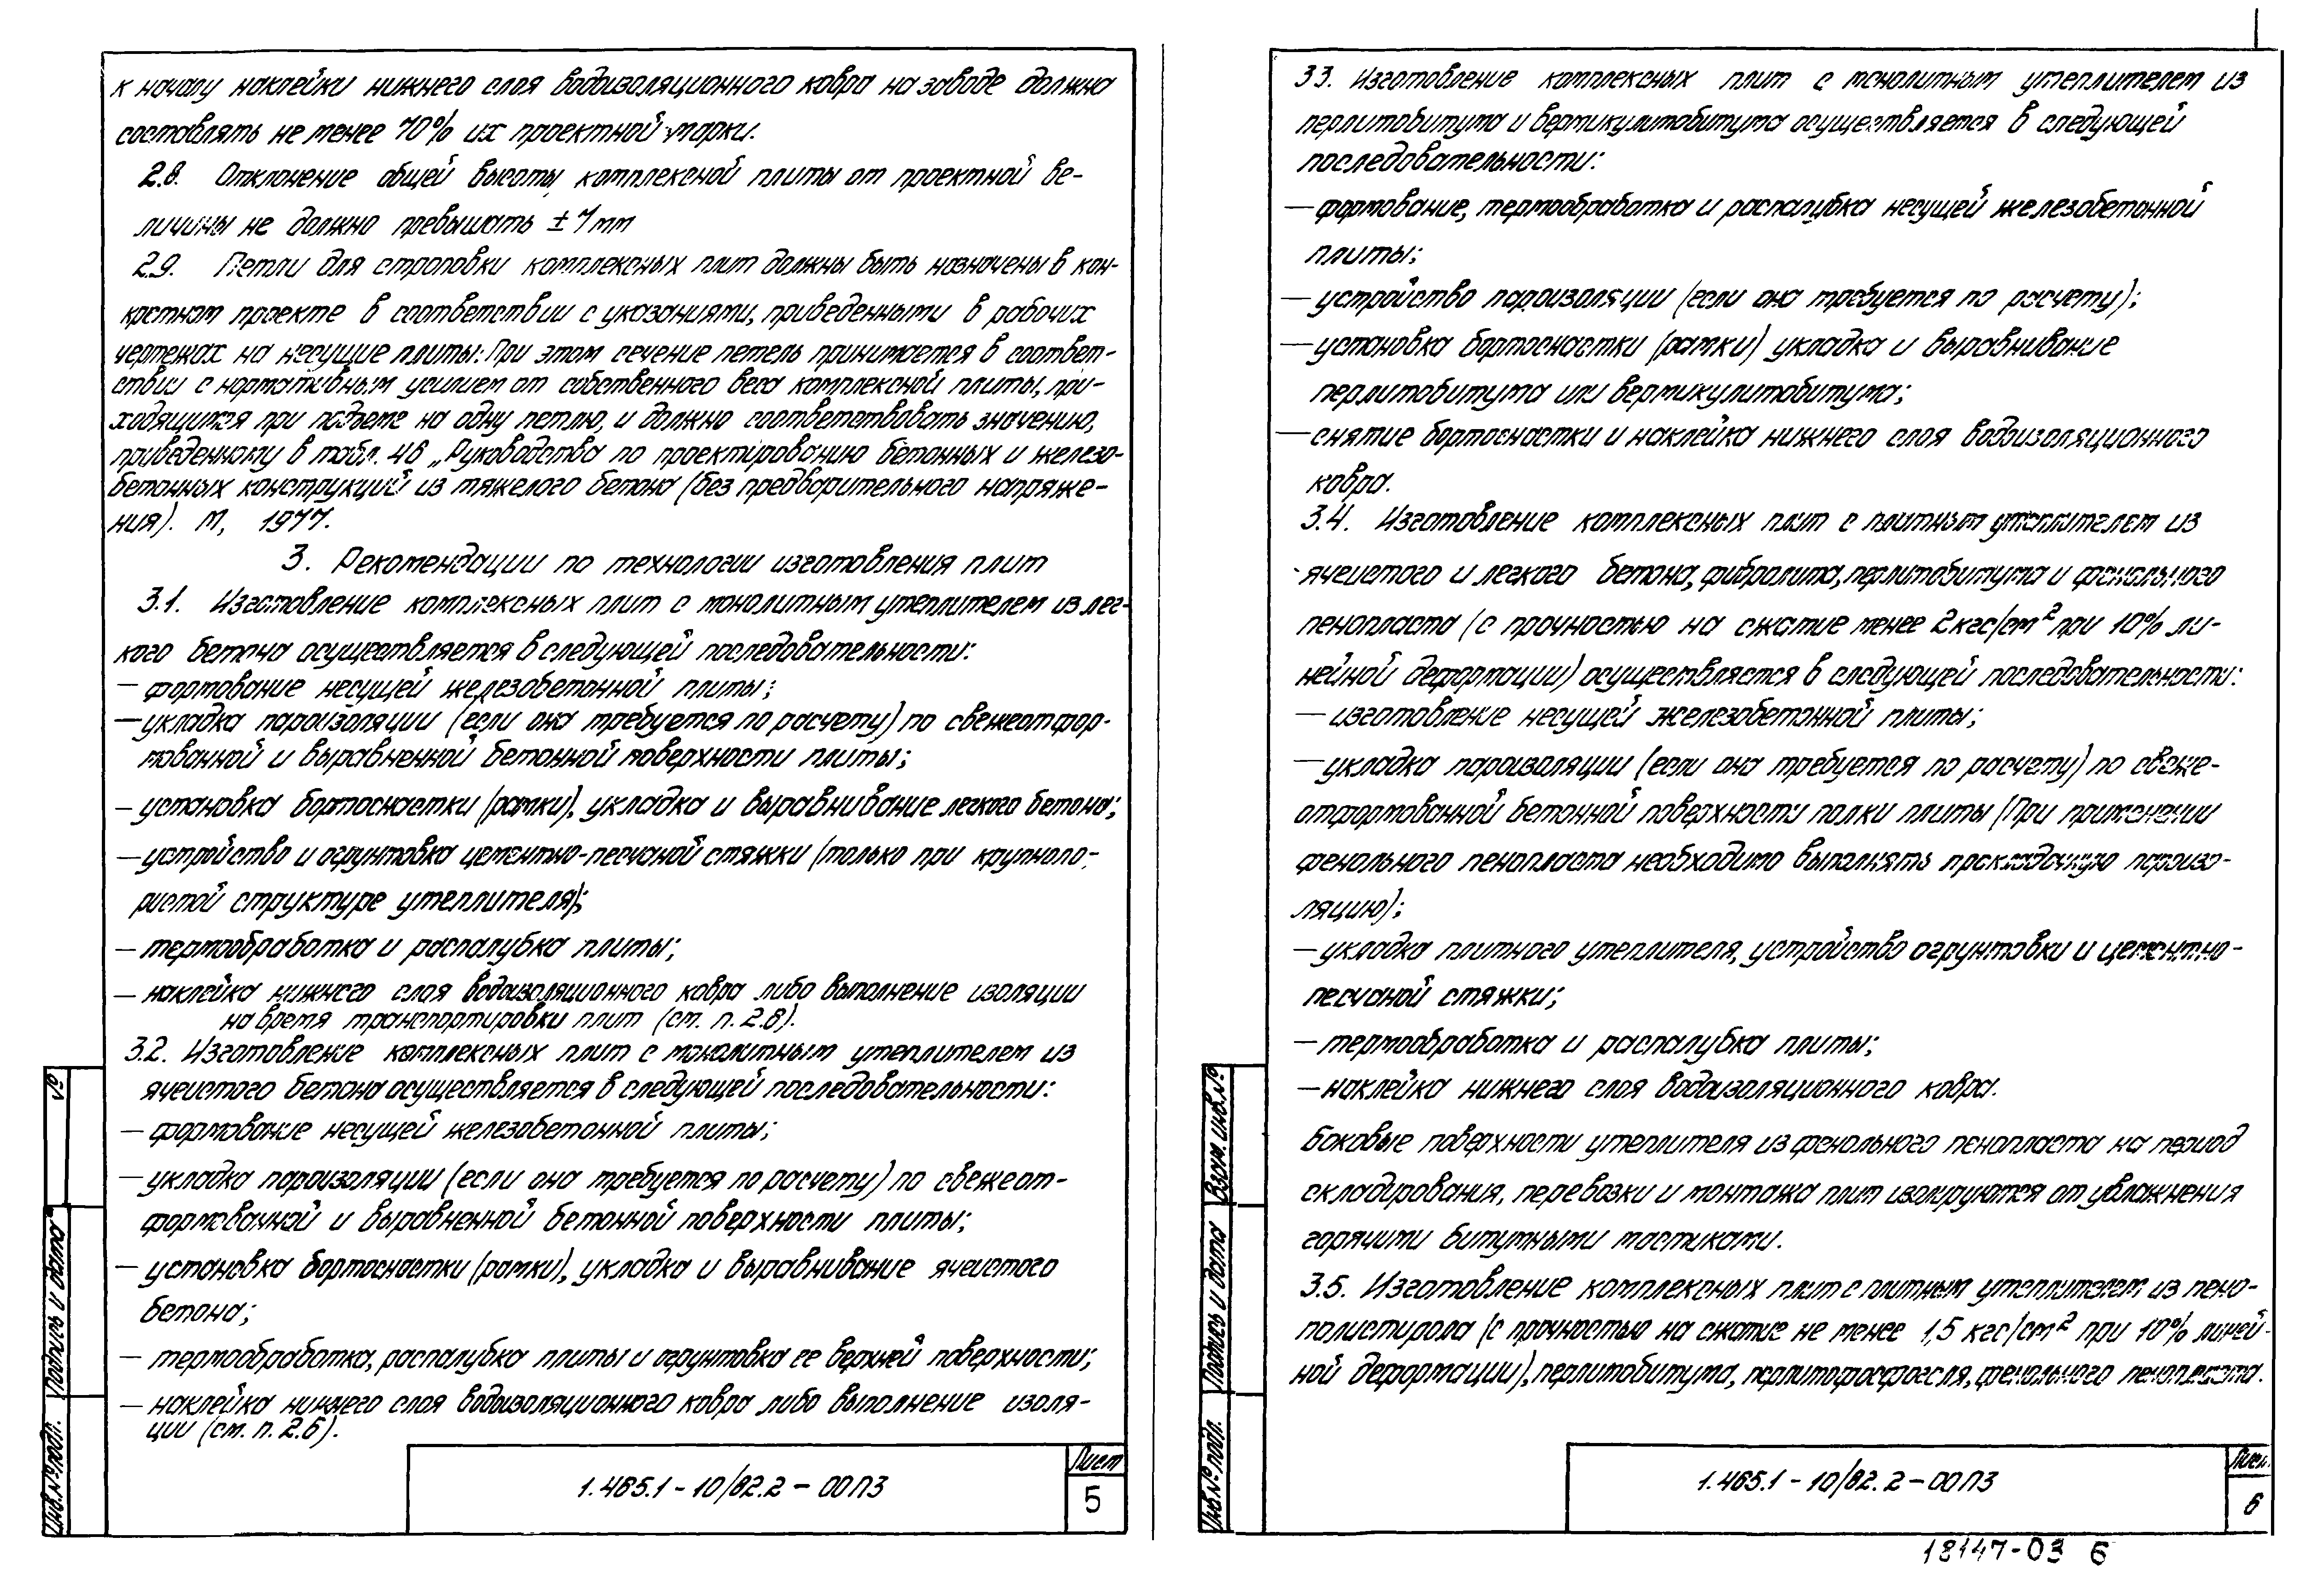 к началу наклейки нижнего слоя водоизоляционного ковра на заводе должна
составлять не менее 70% их проектной марки.
2.8. Отклонение общей высоты комплексной плиты от проектной ве-
личины не должно превышать ±7мм
2.9. Петли для строповки комплексных плит должны быть назначены в кон-
кретном проекте в соответствии с указаниями, приведенными в рабочих
чертежах на несущие плиты: При этом сечение петель принимается в соответ-
ствии с нормативным усилием от собственного веса комплексной плиты, при-
ходящимся при подъеме на одну петлю, и должно соответствовать значению,
приведенному в табл. 46 „Руководства по проектированию бетонных и железо-
бетонных конструкций из тяжелого бетона (без предварительного напряже-
ния). М, 1977.
3. Рекомендации по технологии изготовления плит
3.1. Изготовление комплексных плит с монолитным утеплителем из лег-
кого бетона осуществляется в следующей последовательности:
— формование несущей железобетонной плиты;
— укладка пароизоляции (если она требуется по расчету) по свежеотфор-
мованной и выравненной бетонной поверхности плиты;
— установка бортоснастки (рамки), укладка и выравнивание легкого бетона;
— устройство и огрунтовка цементно-песчаной стяжки (только при крупнопо-
ристой структуре утеплителя);
— термообработка и распалубка плиты;
— наклейка нижнего слоя водоизоляционного ковра либо выполнение изоляции
на время транспортировки плит (см. п. 2.6).
3.2. Изготовление комплексных плит с монолитным утеплителем из
ячеистого бетона осуществляется в следующей последовательности:
— формование несущей железобетонной плиты;
— укладка пароизоляции (если она требуется по расчету) по свежеот-
формованной и выравненной бетонной поверхности плиты;
— установка бортоснастки (рамки), укладка и выравнивание ячеистого
бетона;
— термообработка, распалубка плиты и огрунтовка ее верхней поверхности;
— наклейка нижнего слоя водоизоляционного ковра либо выполнение изоля-
ции (см. п. 2.6).
1.465.1-10/82.2-00ПЗ
Лист
5
№
Подпись и дата
Инв.№ подл.
3.3. Изготовление комплексных плит с монолитным утеплителем из
перлитобитума и вермикулитобитума осуществляется в следующей
последовательности:
— формование, термообработка и распалубка несущей железобетонной
плиты;
— устройство пароизоляции (если она требуется по расчету);
— установка бортоснастки (рамки) укладка и выравнивание
перлитобитума или вермикулитобитума;
— снятие бортоснастки и наклейка нижнего слоя водоизоляционного
ковра.
3.4. Изготовление комплексных плит с плитным утеплителем из
ячеистого и легкого бетона, фибролита, перлитобитума и фенольного
пенопласта (с прочностью на сжатие менее 2кгс/см² при 10% ли-
нейной деформации) осуществляется в следующей последовательности:
— изготовление несущей железобетонной плиты;
— укладка пароизоляции (если она требуется по расчету) по свеже-
отформованной бетонной поверхности полки плиты (При применении
фенольного пенопласта необходимо выполнять прокладочную пароизо-
ляцию);
— укладка плитного утеплителя, устройство огрунтовки и цементно-
песчаной стяжки;
— термообработка и распалубка плиты;
— наклейка нижнего слоя водоизоляционного ковра.
Боковые поверхности утеплителя из фенольного пенопласта на период
складирования, перевозки и монтажа плит изолируются от увлажнения
горячими битумными мастиками.
3.5. Изготовление комплексных плит с плитным утеплителем из пено-
полистирола (с прочностью на сжатие не менее 1,5 кгс/см² при 10% линей-
ной деформации), перлитобитума, перлитофосфогеля, фенольного пенопласта.
1.465.1-10/82.2-00ПЗ
Лист
6
Взам. инв.№
Подпись и дата
Инв.№ подл.
18147-03 6